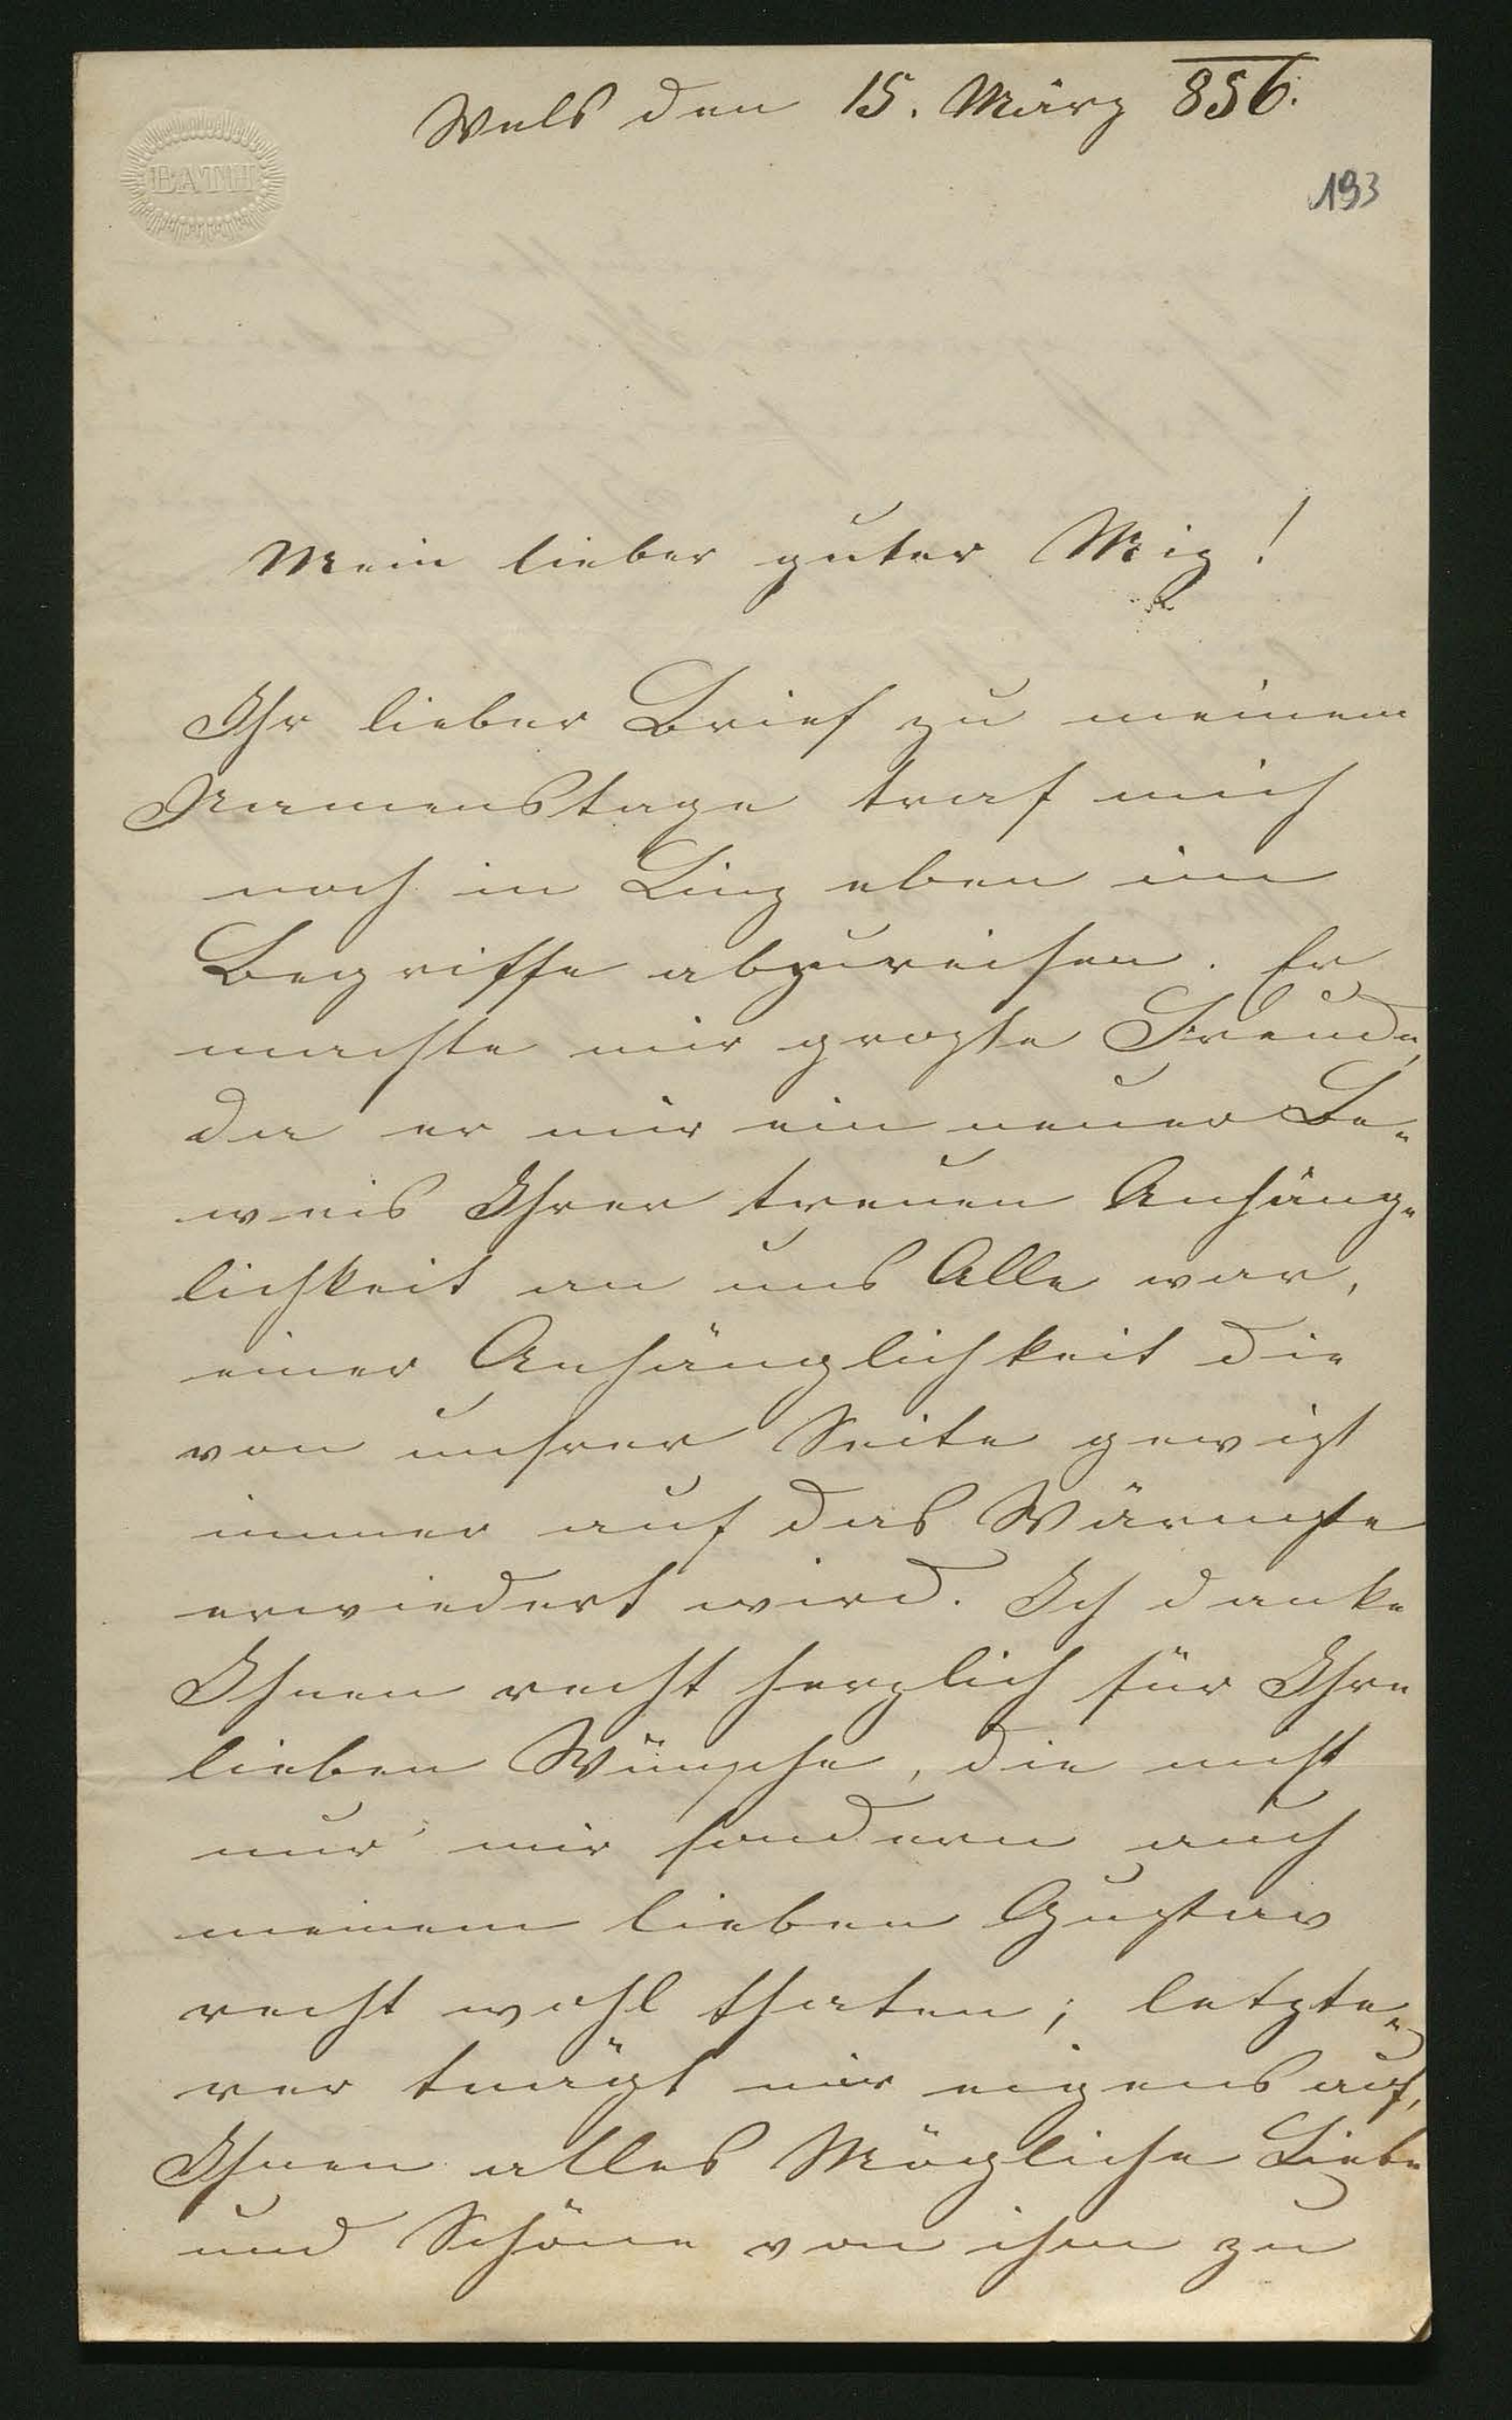 Wels den 15. März 856.
BATH
193
Mein lieber guter Mig!
Ihr lieber Brief zu meinem
Namenstage traf mich
noch in Linz eben im
Begriffe abzureisen. Er
machte mir großte Freude,
da er mir ein neuer Be-
weis Ihrer treuen Anhäng-
lichkeit an uns Alle war,
einer Anhänglichkeit die
von unsrer Seite gewißt
immer auf das Wärmste
erwiedert wird. Ich danke
Ihnen recht herzlich für Ihre
lieben Wünsche, die nicht
nur mir sondern auch
meinem lieben Gustav
recht wohl thaten; letzte-
rer trägt mir eigens auf,
Ihnen alles Mögliche Liebe
und Schöne von ihm zu